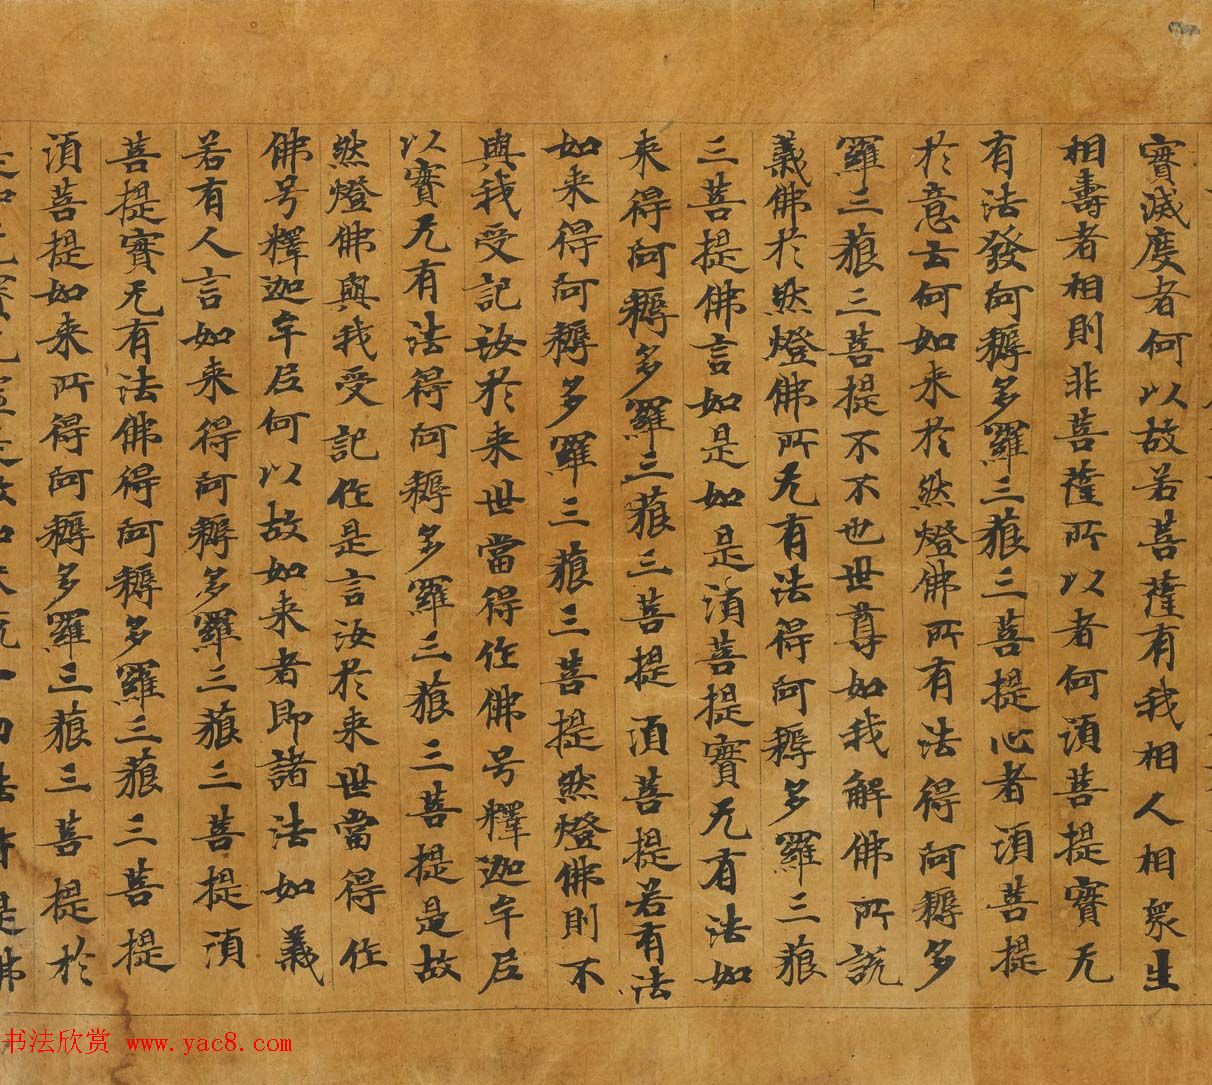 實滅度者何以故若菩薩有我相人相衆生
相壽者相則非菩薩所以者何須菩提實无
有法發阿耨多羅三藐三菩提心者須菩提
於意云何如来於然燈佛所有法得阿耨多
羅三藐三菩提不不也世尊如我解佛所說
義佛於然燈佛所无有法得阿耨多羅三藐
三菩提佛言如是如是須菩提實无有法如
来得阿耨多羅三藐三菩提須菩提若有法
如来得阿耨多羅三藐三菩提然燈佛則不
與我受記汝於来世當得作佛号釋迦牟尼
以實无有法得阿耨多羅三藐三菩提是故
然燈佛與我受記作是言汝於来世當得作
佛号釋迦牟尼何以故如来者即諸法如義
若有人言如来得阿耨多羅三藐三菩提須
菩提實无有法佛得阿耨多羅三藐三菩提
須菩提如来所得阿耨多羅三藐三菩提於
书法欣赏 www.yac8.com